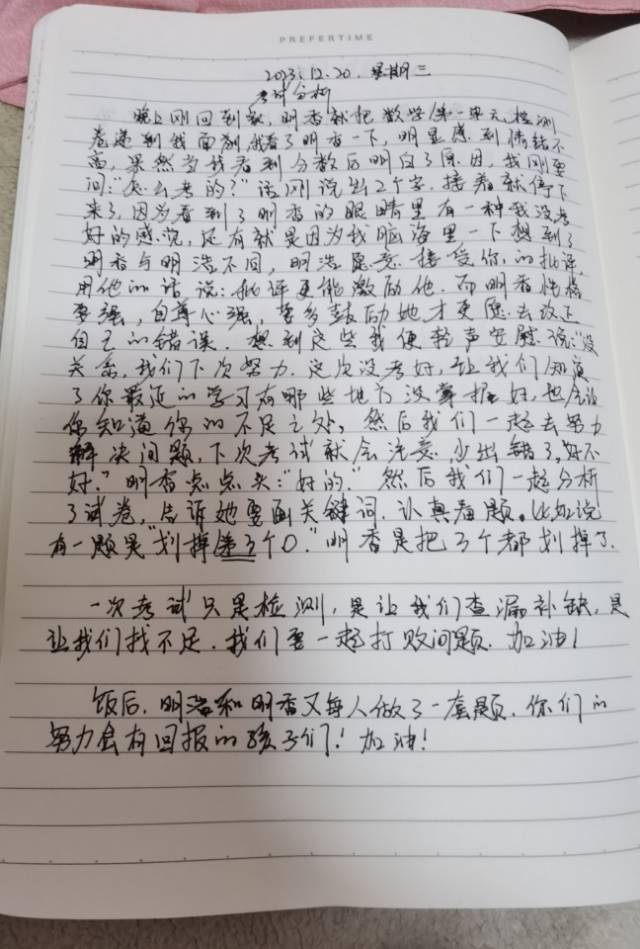 PREFERTIME
2023.12.20. 星期三
考试分析
晚上刚回到家,明香就把数学第一单元检测
卷递到我面前,我看了明香一下,明显感到情绪不
高,果然当我看到分数后明白了原因,我刚要
问:“怎么考的?”话刚说出2个字,接着就停下
来了,因为看到了明香的眼睛里有一种我没考
好的感觉,还有就是因为我脑海里一下想到了
明香与明浩不同,明浩愿意接受你的批评,
用他的话说:批评更能激励他.而明香性格
要强,自尊心强,要多鼓励她才更愿去改正
自己的错误.想到这些我便轻声安慰说:“没
关系,我们下次努力.这次没考好,让我们知道
了你最近的学习有哪些地方没掌握好,也会让
你知道你的不足之处,然后我们一起去努力
解决问题,下次考试就会注意,少出错了,好不
好.”明香点点头:“好的.”然后我们一起分析
了试卷,告诉她要画关键词.认真看题。比如说
有一题是“划掉第3个0.”明香是把3个都划掉了.
一次考试只是检测,是让我们查漏补缺,是
让我们找不足.我们要一起打败问题.加油!
饭后.明浩和明香又每人做了一套题.你们的
努力会有回报的孩子们!加油!